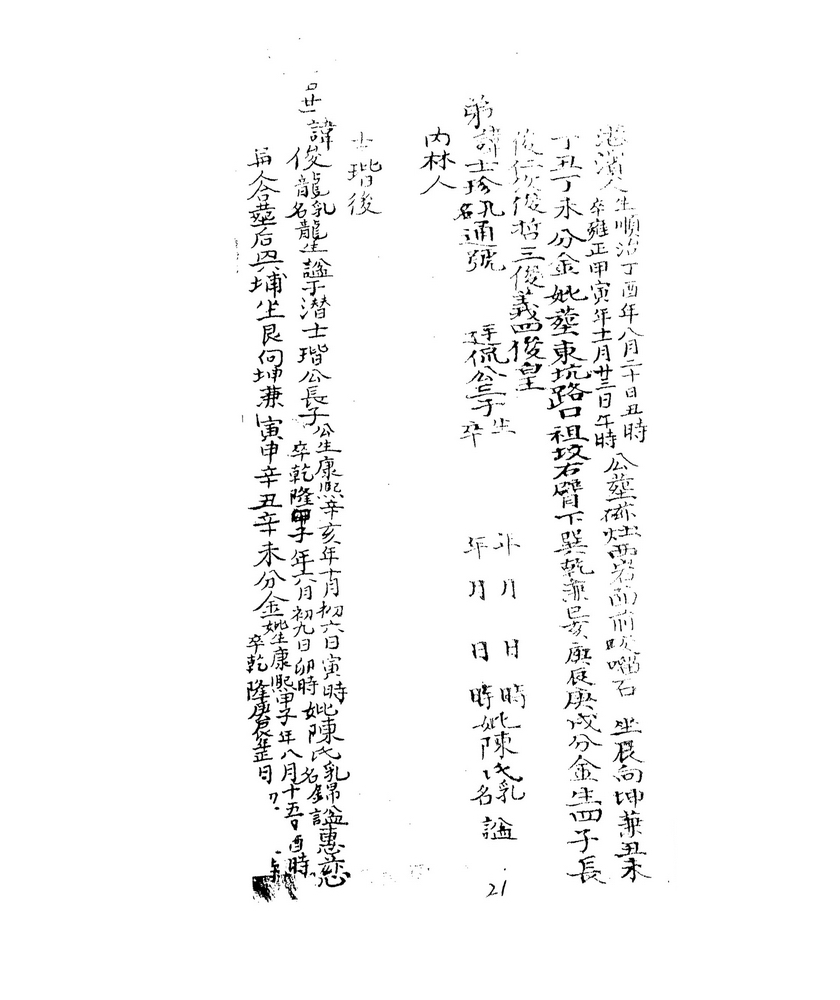 生順治丁酉年八月二十日丑時
卒雍正甲寅年十一月廿三日午時
公墓 西岩面前 石 坐艮向坤兼丑未
丁丑丁未分金妣墓東坑路口祖坟右臂下巽乾兼巳亥庚辰庚戌分金生四子長
俊 次俊哲三俊義四俊皇
弟諱士珍乳名通號 侃公三子 生 年 月 日 時
卒 年 月 日 時妣陳氏乳名 謚
內林人
士瑎後
廿一世諱俊龍乳名龍生謚于潛士瑎公長子公生康熙辛亥年十月初六日寅時
卒乾隆甲子年六月初九日卯時妣陳氏乳名 謚惠慈
合墓后 埔坐艮向坤兼寅申辛丑辛未分金妣生康熙甲子年八月十五日酉時
卒乾隆庚辰 月
21